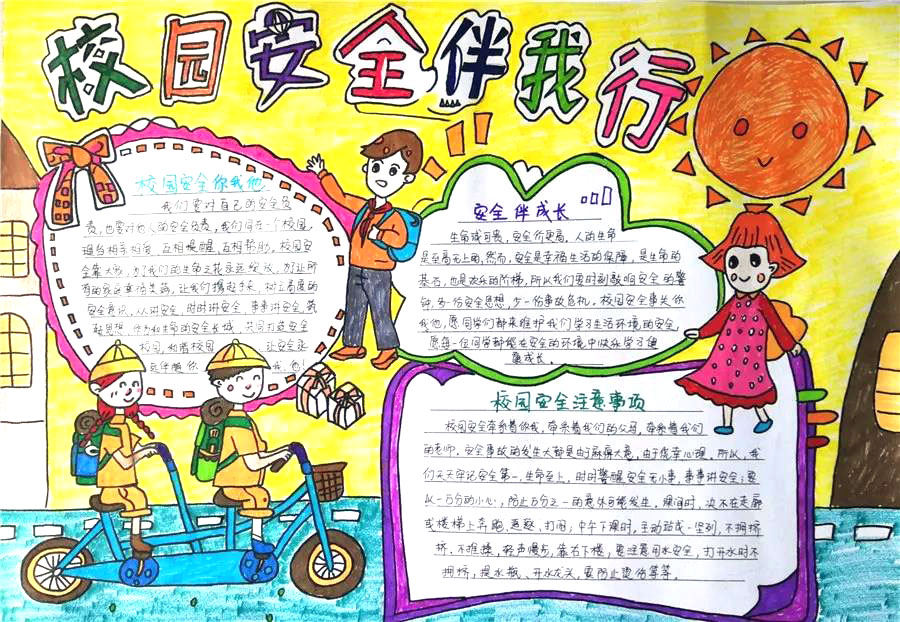 校园安全伴我行
校园安全你我他
我们要对自己的安全负
责,也要对他人的安全负责,我们同在一个校园,
理当相亲相爱,互相提醒、互相帮助。校园安
全靠大家,为了我们的生命之花永远绽放,为了让所
有的家远离伤害,让我们携起手来,树立高度的
安全意识,人人讲安全,时时讲安全,事事讲安全,筑
起思想、行为和生命的安全长城,共同打造安全
校园,和谐校园 让安全永
远伴随你 我,他!
安全伴成长
生命诚可贵,安全价更高。人的生命
是至高无上的,然而,安全是幸福生活的保障,是生命的
基石,也是欢乐的阶梯,所以我们要时刻敲响安全的警
钟,多一份安全思想,少一份事故危机。校园安全事关你
我他,愿同学们都来维护我们学习生活环境的安全,
愿每一位同学都能在安全的环境中快乐学习健
康成长。
校园安全注意事项
校园安全牵系着你我,牵系着我们的父母,牵系着我们
的老师。安全事故的发生大都是由于麻痹大意,由于侥幸心理,所以,我
们天天牢记安全第一,生命至上,时时警醒安全无小事,事事讲安全;要
以一百分的小心,防止百分之一的意外可能发生。课间时,决不在走廊
或楼梯上奔跑、追逐、打闹,中午下课时,主动站成一竖列,不拥挤
挤,不推搡,轻声慢步,靠右下楼,要注意用水安全,打开水时不
拥挤,提水瓶、开水龙头,要防止烫伤等等。